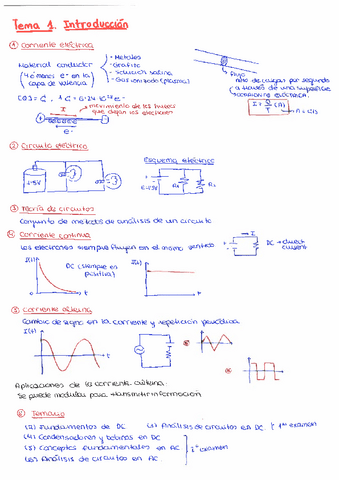 Tema 1. Introducción
① Corriente eléctrica
Material conductor
(4 ó menos e- en la
capa de valencia)
- Metales
- Grafito
- Solución salina
- Gas ionizado (plasma)
flujo
nºto de cargas por segundo
a través de una superficie
→ corriente eléctrica.
I = Q/T (A)
movimiento de los huecos
que dejan los electrones
I
e-
② Circuito eléctrico
Esquema eléctrico
1.5V
R1
R2
③ Teoría de circuitos
Conjunto de métodos de análisis de un circuito
④ Corriente continua
Los electrones siempre fluyen en el mismo sentido
I(t)
DC (siempre en
positiva)
I(t)
t
t
I
DC → direct
current
⑤ Corriente alterna
Cambio de signo en la corriente y repetición periódica.
I(t)
t
Aplicaciones de la corriente alterna.
Se puede modular para transmitir información
⑥ Temario
(2) Fundamentos de DC
(3) Análisis de circuitos en DC
1er examen
(4) Condensadores y bobinas en DC
(5) Conceptos fundamentales en AC
(6) Análisis de circuitos en AC
2º examen